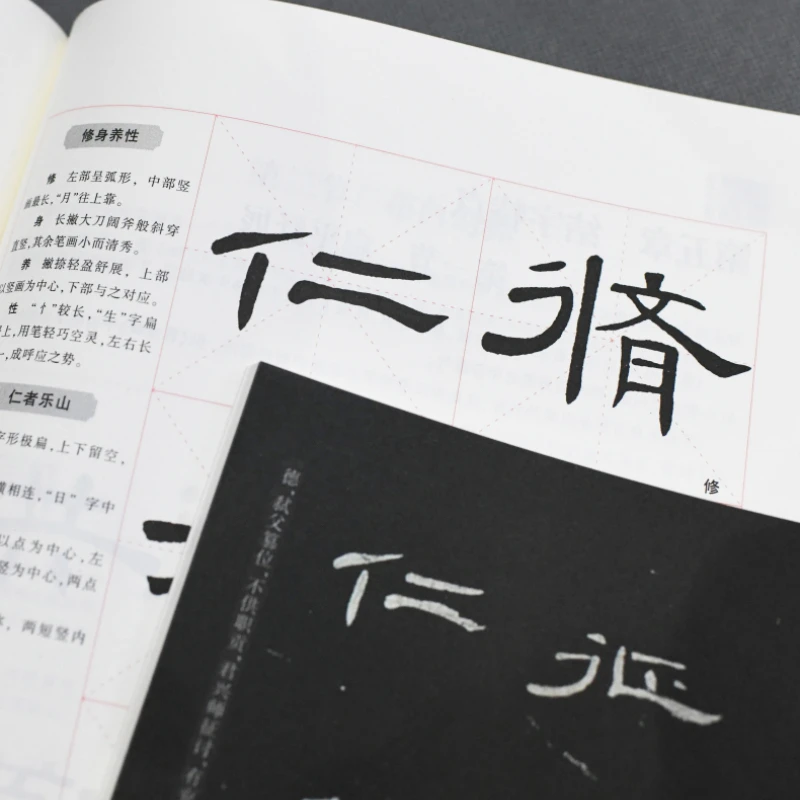 修身养性
修 左部呈弧形，中部竖
画最长，“月”往上靠。
身 长撇大刀阔斧般斜穿
直竖，其余笔画小而清秀。
养 撇捺轻盈舒展，上部
以竖画为中心，下部与之对应。
性 “忄”较长，“生”字扁
上，用笔轻巧空灵，左右长
，成呼应之势。
仁者乐山
字形极扁，上下留空，
横相连，“日”字中
以点为中心，左
竖为中心，两点
，两短竖内
仁 脩
修
德，弑父篡位，不供职贡，君兴师征讨，有
仁 征